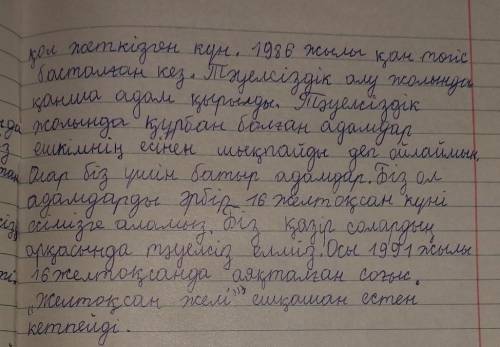 қол жеткізген күн. 1986 жылы қан төгіс
басталған кез. Тәуелсіздік алу жолында
қанша адам қырылды. Тәуелсіздік
жолында құрбан болған адамдар
ешкімнің есінен шықпайды деп ойлаймын.
Олар біз үшін батыр адамдар. Біз ол
адамдарды әрбір 16 желтоқсан күні
есімізге аламыз. Біз қазір солардың
арқасында тәуелсіз елміз. Осы 1991 жылы
16 желтоқсанда аяқталған соғыс.
"Желтоқсан желі" ешқашан естен
кетпейді.